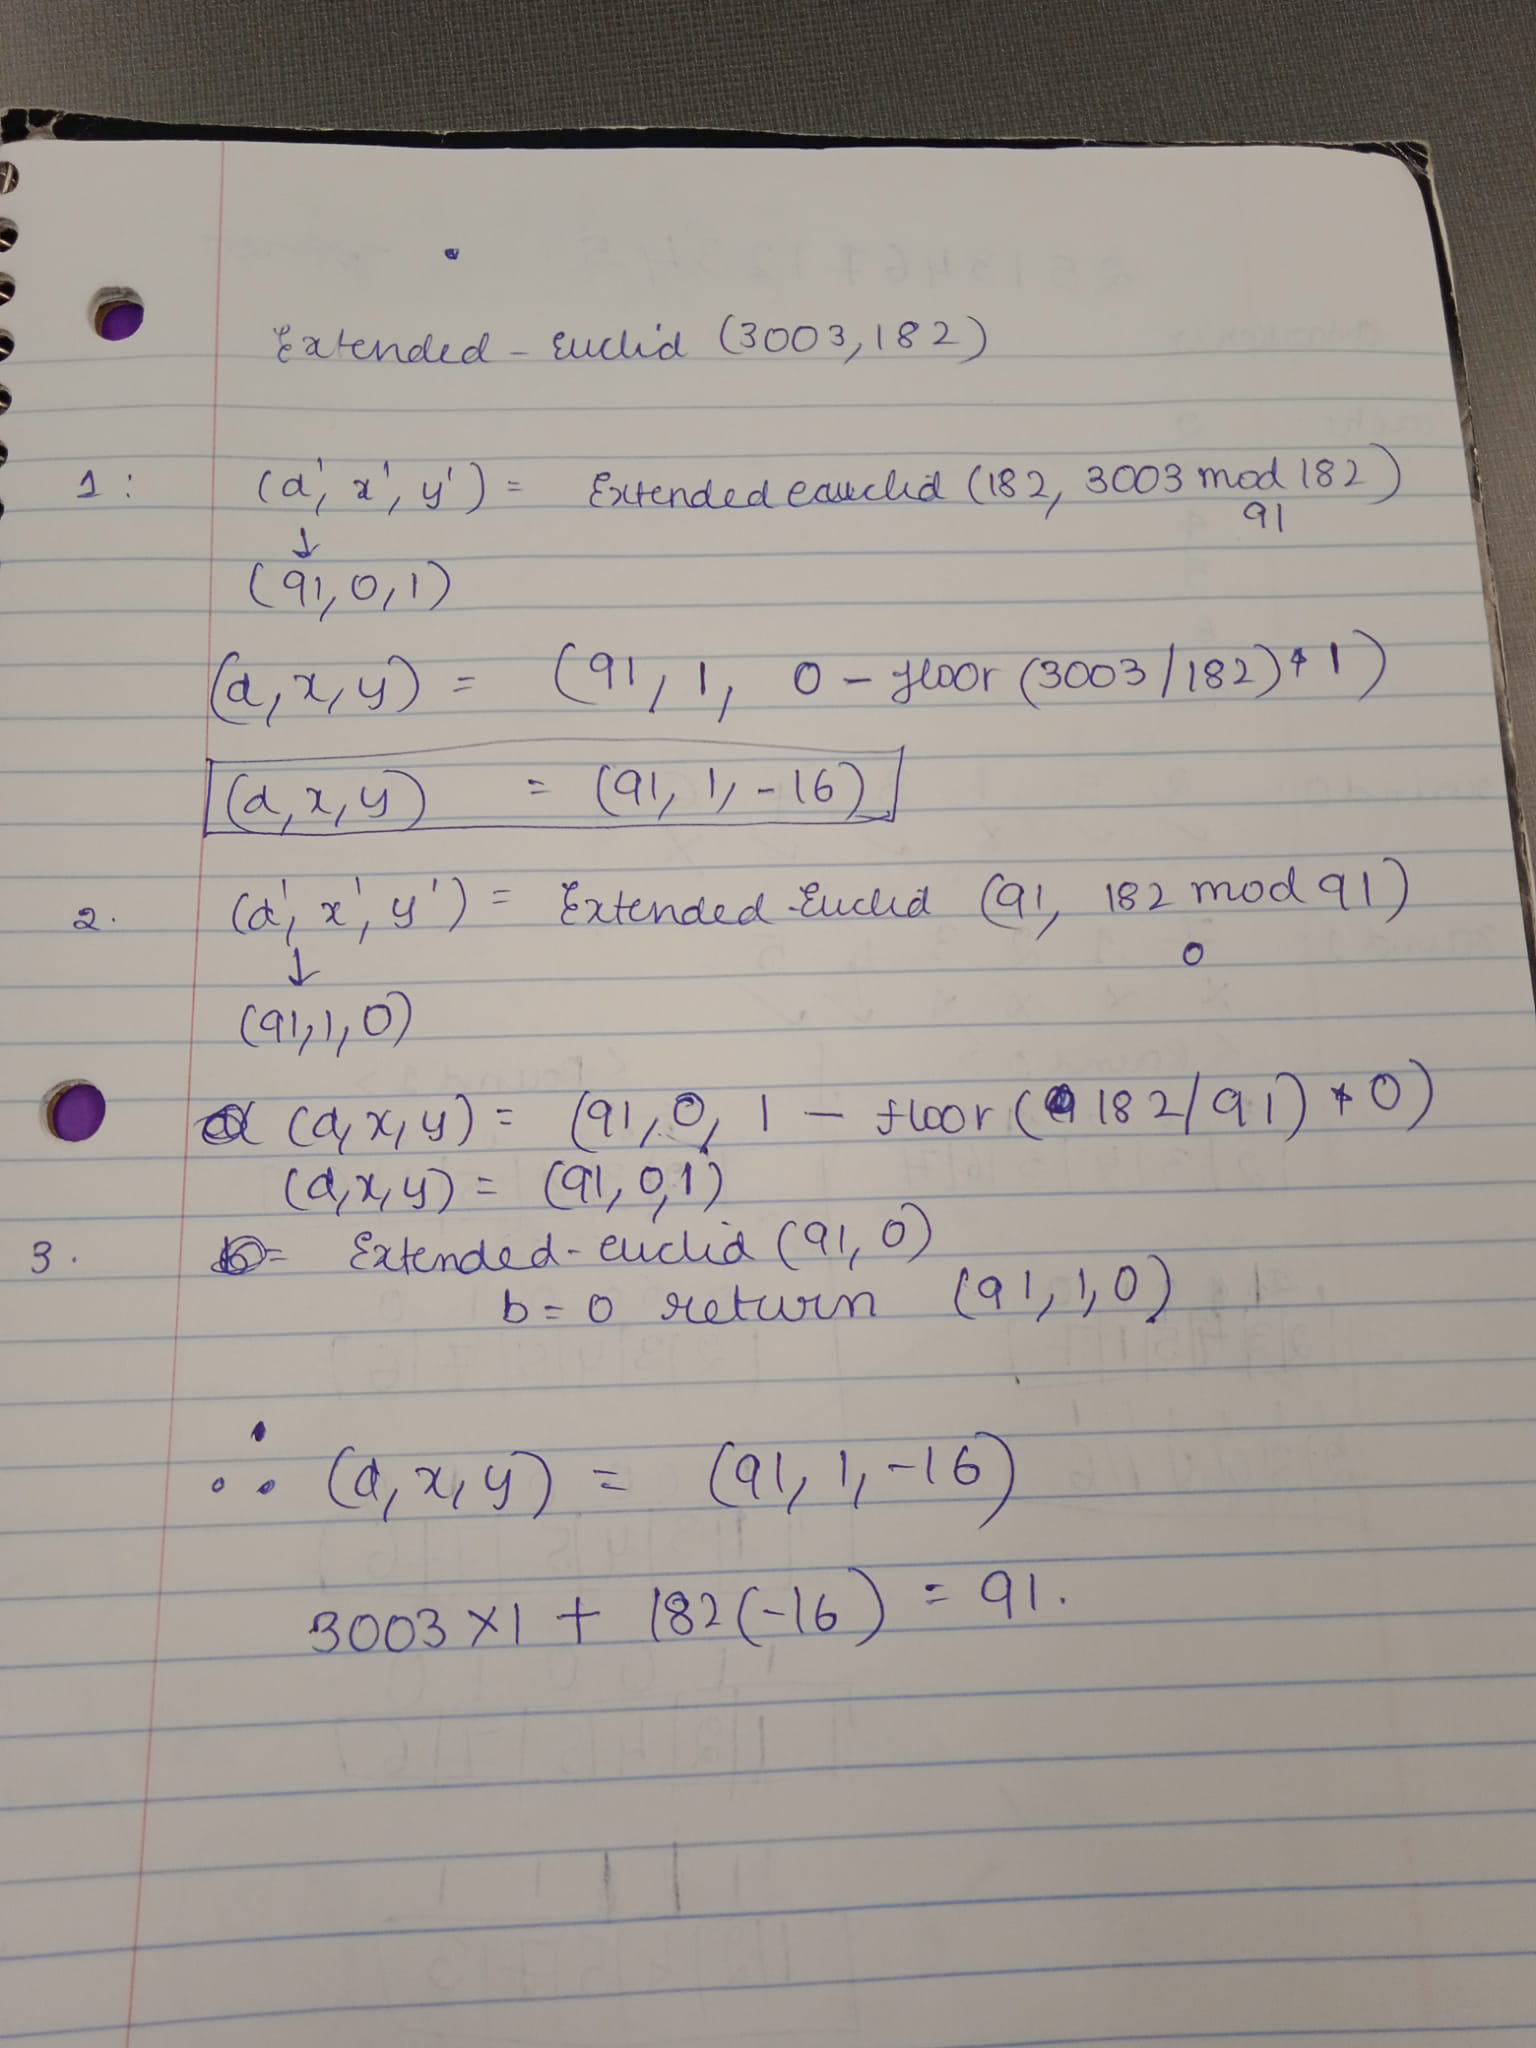 Extended - Euclid (3003, 182)
1 : (d', x', y') = Extended eauclid (182, 3003 mod 182)
91
↓
(91, 0, 1)
(d, x, y) = (91, 1, 0 - floor (3003/182) * 1)
(d, x, y) = (91, 1, -16)
2. (d', x', y') = Extended-Euclid (91, 182 mod 91)
0
↓
(91, 1, 0)
(d, x, y) = (91, 0, 1 - floor (182/91) * 0)
(d, x, y) = (91, 0, 1)
3. Extended-euclid (91, 0)
b = 0 return (91, 1, 0)
∴ (d, x, y) = (91, 1, -16)
3003 × 1 + 182(-16) = 91.